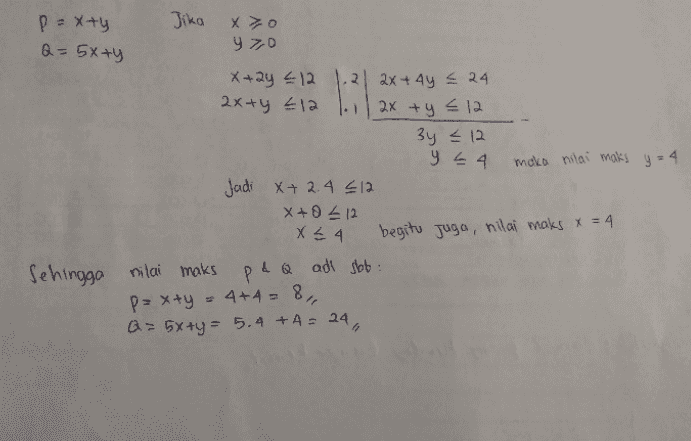 P = x+y Jika x ≥ 0
Q = 5x+y y ≥ 0
x+2y ≤ 12 |.2| 2x + 4y ≤ 24
2x+y ≤ 12 |.1| 2x + y ≤ 12 -
3y ≤ 12
y ≤ 4 maka nilai maks y = 4
Jadi x + 2.4 ≤ 12
x + 8 ≤ 12
x ≤ 4 begitu juga, nilai maks x = 4
Sehingga nilai maks p & Q adl sbb :
P = x+y = 4+4 = 8,,
Q = 5x+y = 5.4 + 4 = 24,,